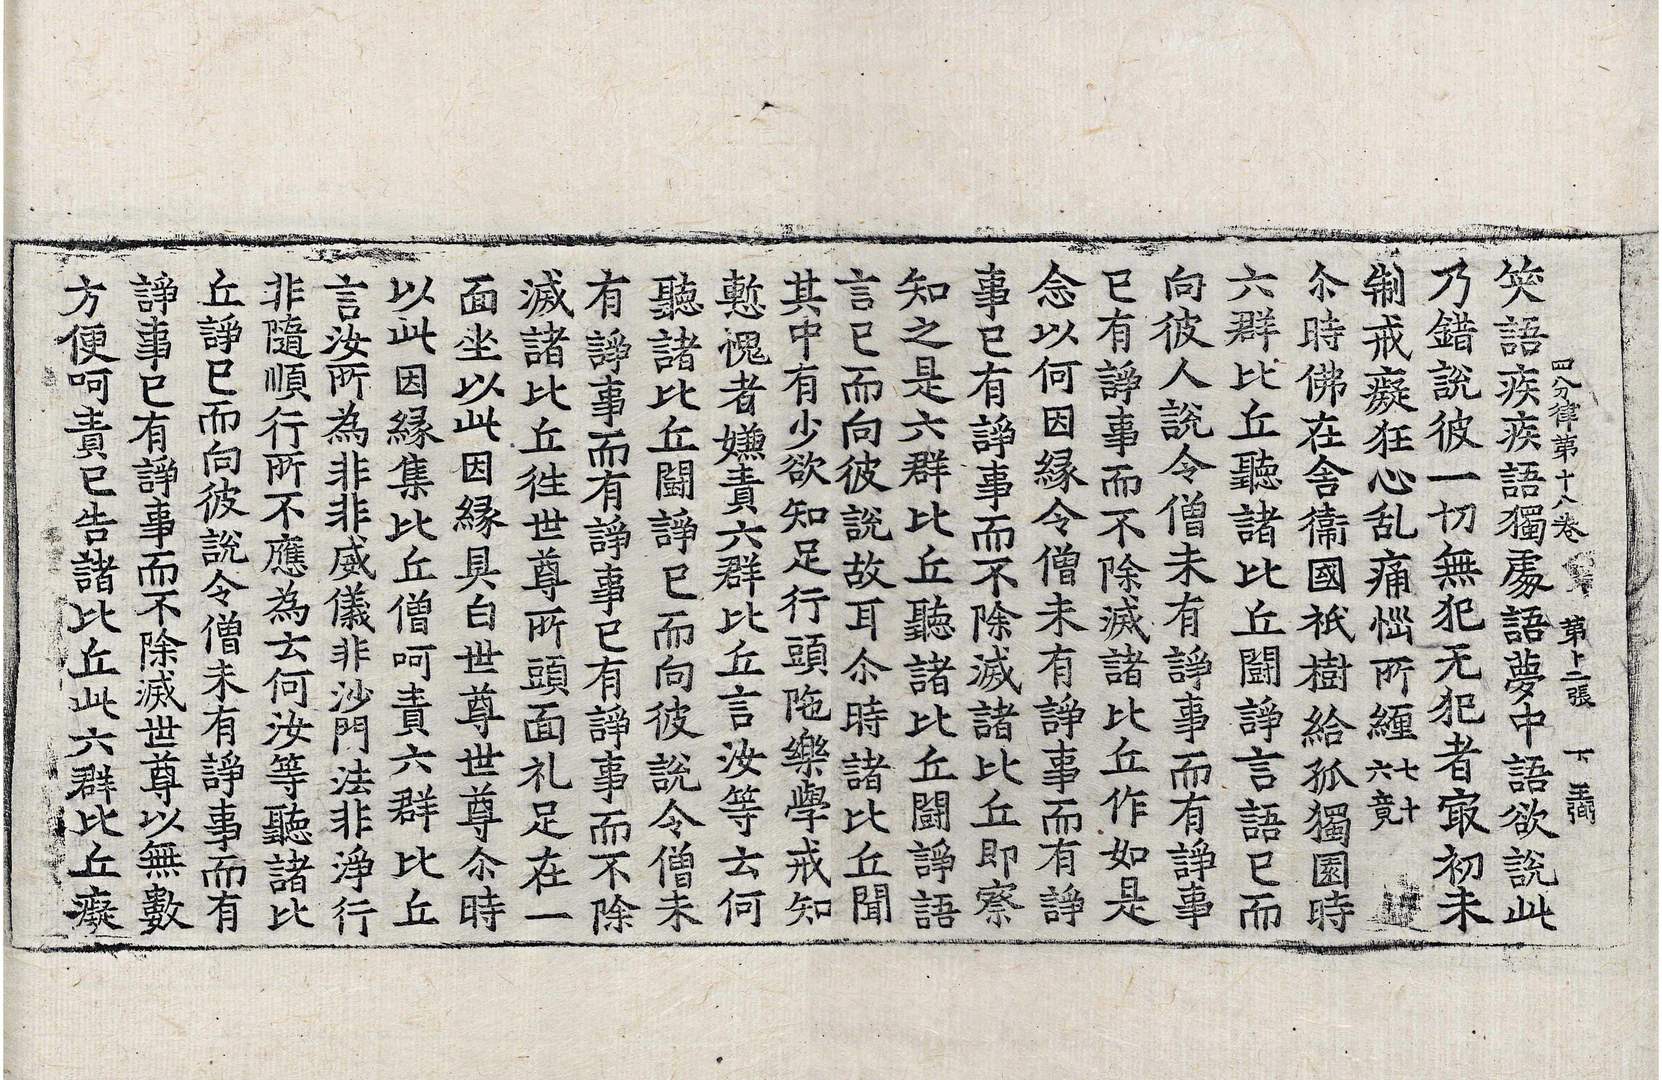 笑語疾疾語獨䖏語夢中語欲說此
四分律第十八卷 第十二張 下
乃錯說彼一切無犯无犯者㝡初未
制戒癡狂心乱痛惱所纒七十六竟
尒時佛在舎衞國祇樹給孤獨園時
六群比丘聽諸比丘闘諍言語已而
向彼人說令僧未有諍事而有諍事
已有諍事而不除滅諸比丘作如是
念以何因縁令僧未有諍事而有諍
事已有諍事而不除滅諸比丘即察
知之是六群比丘聽諸比丘闘諍語
言已而向彼說故耳尒時諸比丘聞
其中有少欲知足行頭陁樂學戒知
慙愧者嫌責六群比丘言汝等云何
聽諸比丘闘諍已而向彼說令僧未
有諍事而有諍事已有諍事而不除
滅諸比丘徃世尊所頭面礼足在一
面坐以此因縁具白世尊世尊尒時
以此因縁集比丘僧呵責六群比丘
言汝所為非非威儀非沙門法非淨行
非隨順行所不應為云何汝等聽諸比
丘諍已而向彼說令僧未有諍事而有
諍事已有諍事而不除滅世尊以無數
方便呵責已告諸比丘此六群比丘癡